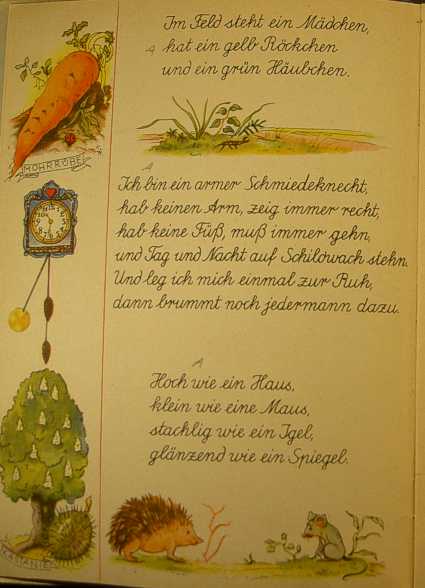 Im Feld steht ein Mädchen,
hat ein gelb Röckchen
und ein grün Häubchen.
MOHRRÜBE
Ich bin ein armer Schmiedeknecht,
hab keinen Arm, zeig immer recht,
hab keine Füß, muß immer gehn,
und Tag und Nacht auf Schildwach stehn.
Und leg ich mich einmal zur Ruh,
dann brummt noch jedermann dazu.
Hoch wie ein Haus,
klein wie eine Maus,
stachlig wie ein Igel,
glänzend wie ein Spiegel.
KASTANIE